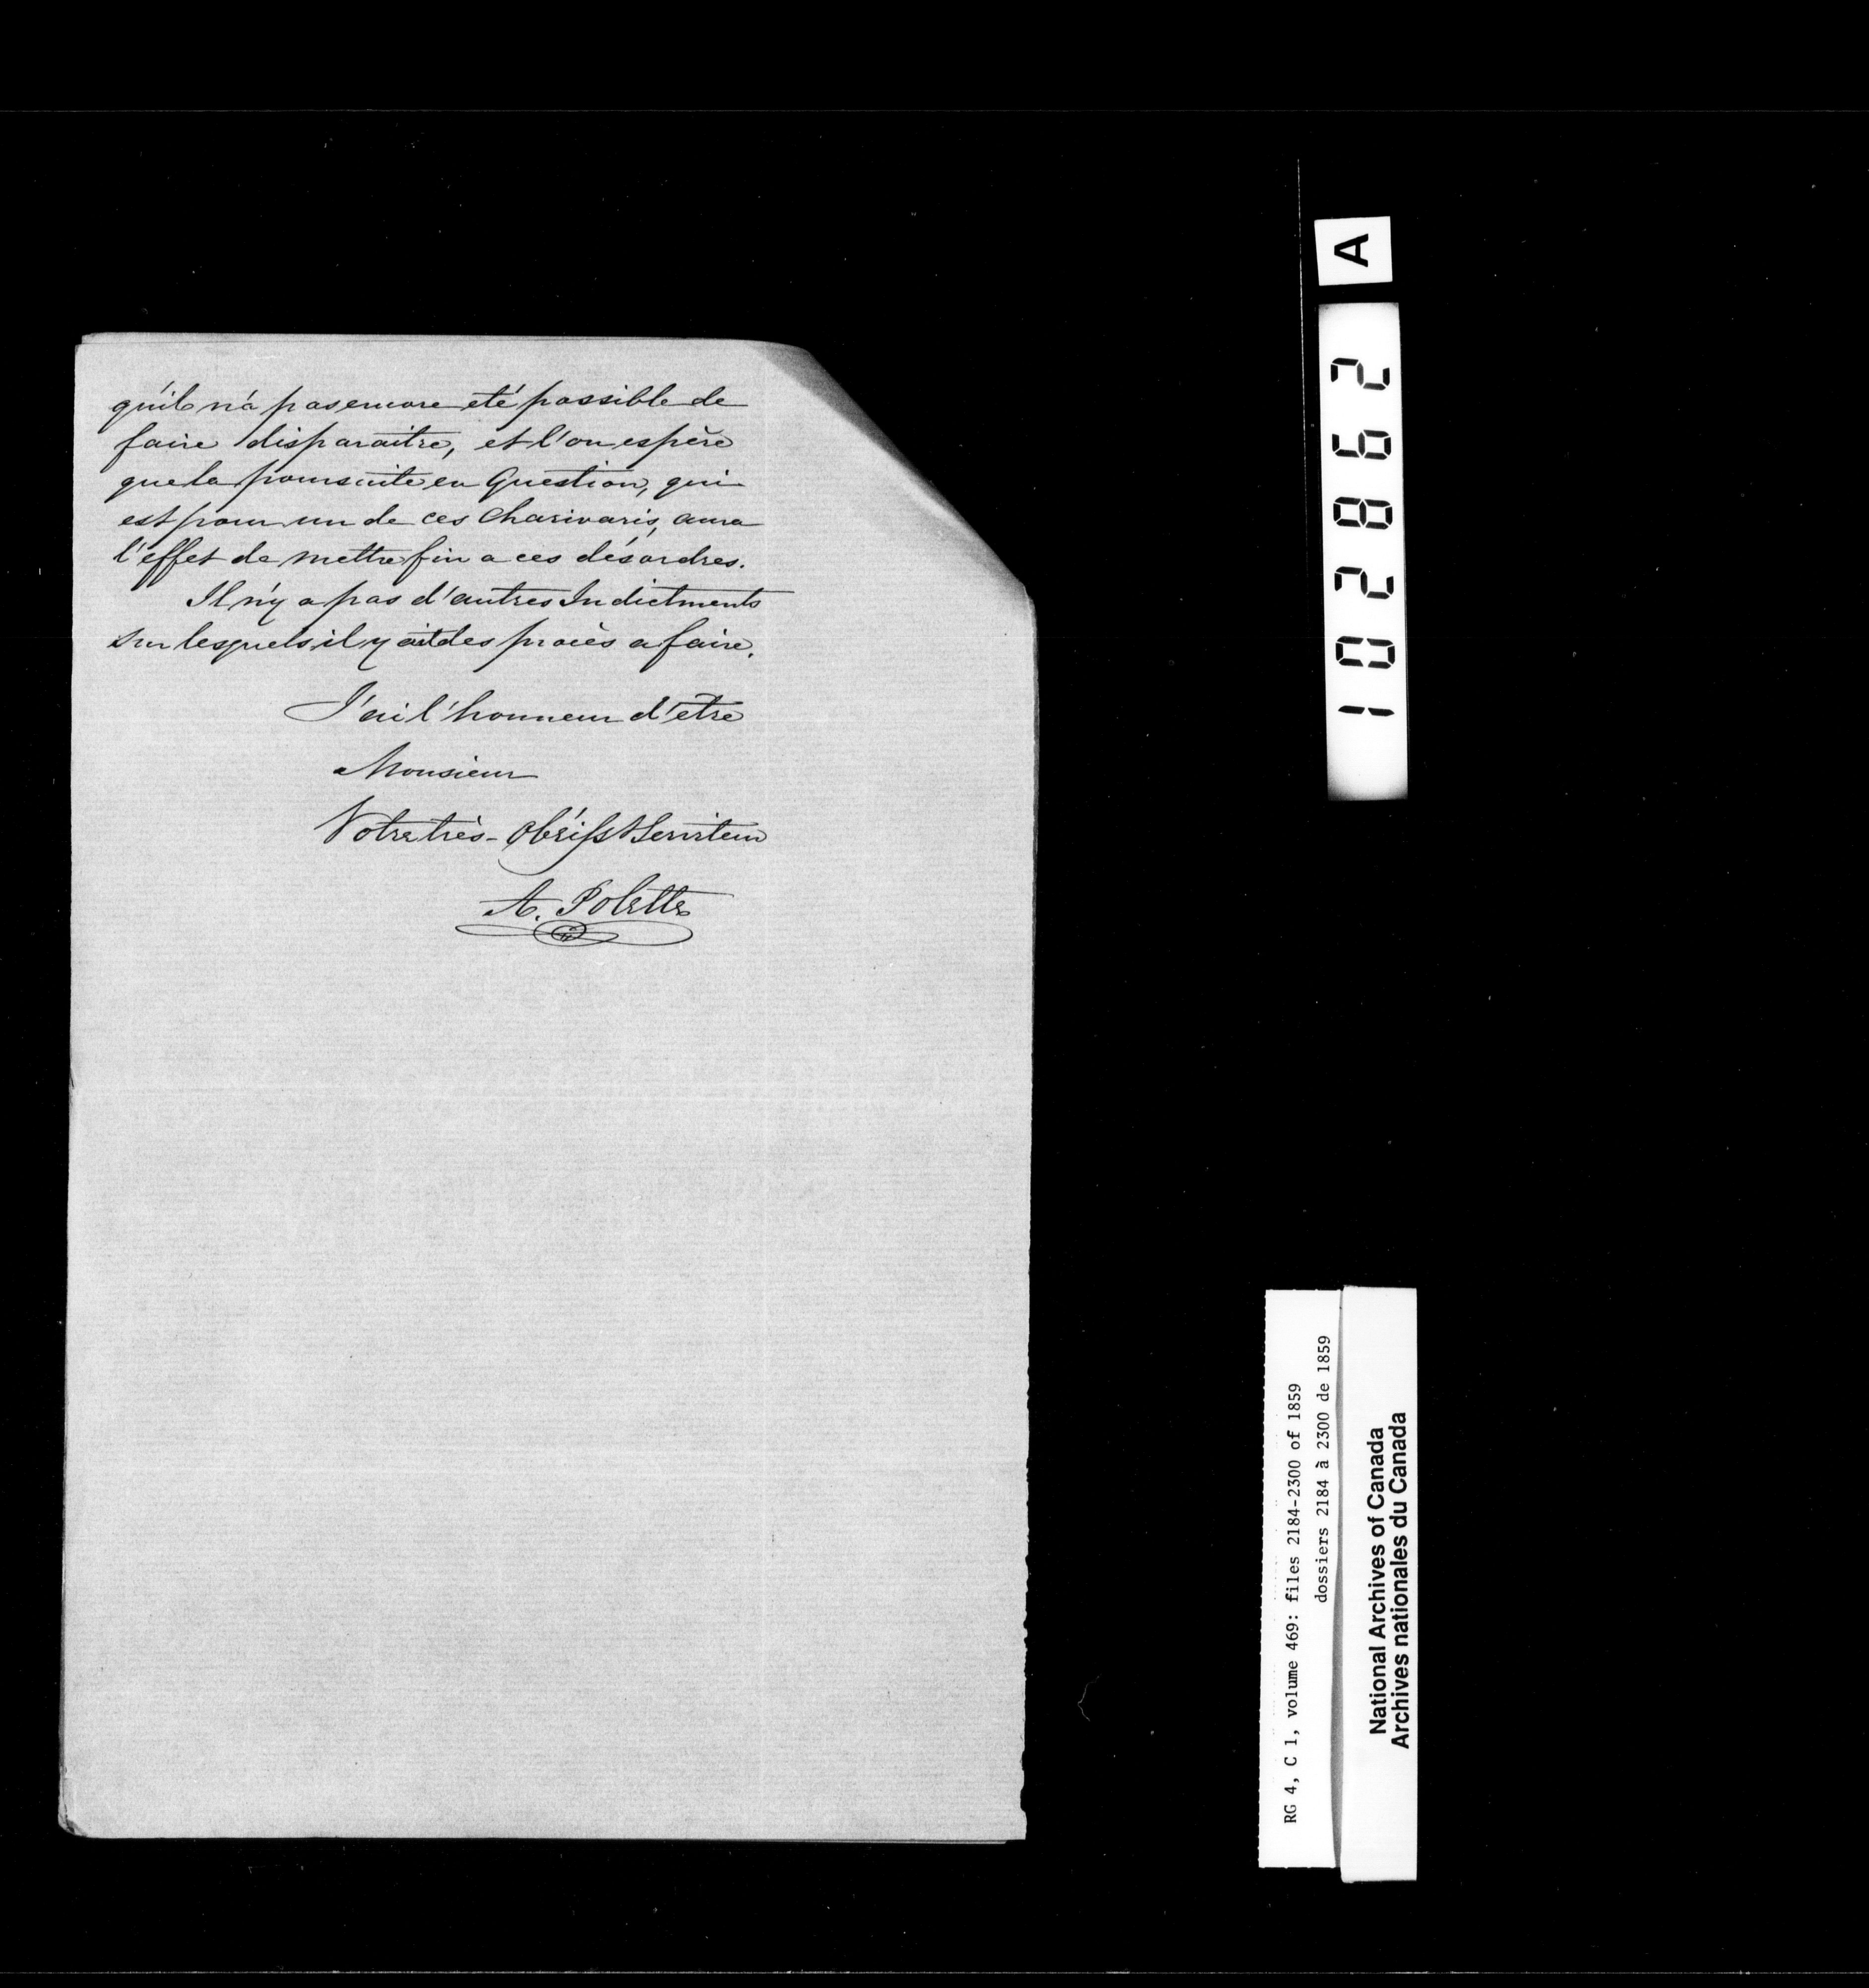 qu'il n'a pas encore été possible de
faire disparaitre, et l'on espère
que la poursuite en Question, qui
est pour un de ces Charivaris, aura
l'effet de mettre fin a ces désordres.
Il n'y a pas d'autres Indictments
sur lesquels il y ait des procès a faire.
J'ai l'honneur d'etre
Monsieur
Votre très-Obéisst Serviteur
A. Polette
A
102862
RG 4, C 1, volume 469: files 2184-2300 of 1859
dossiers 2184 à 2300 de 1859
National Archives of Canada
Archives nationales du Canada